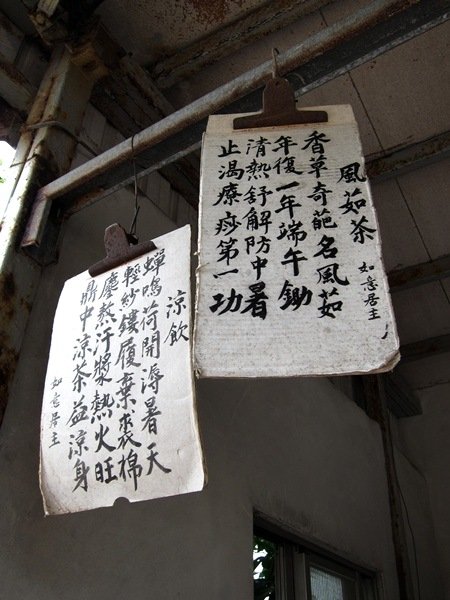 風茹茶
如意居主
香草奇葩名風茹
年復一年端午鋤
清熱舒解防中暑
止渴療痧第一功
涼飲
蟬鳴荷開溽暑天
輕紗鏤履棄裘棉
塵熱汗漿熱火旺
鼎中涼茶益涼身
如意居主